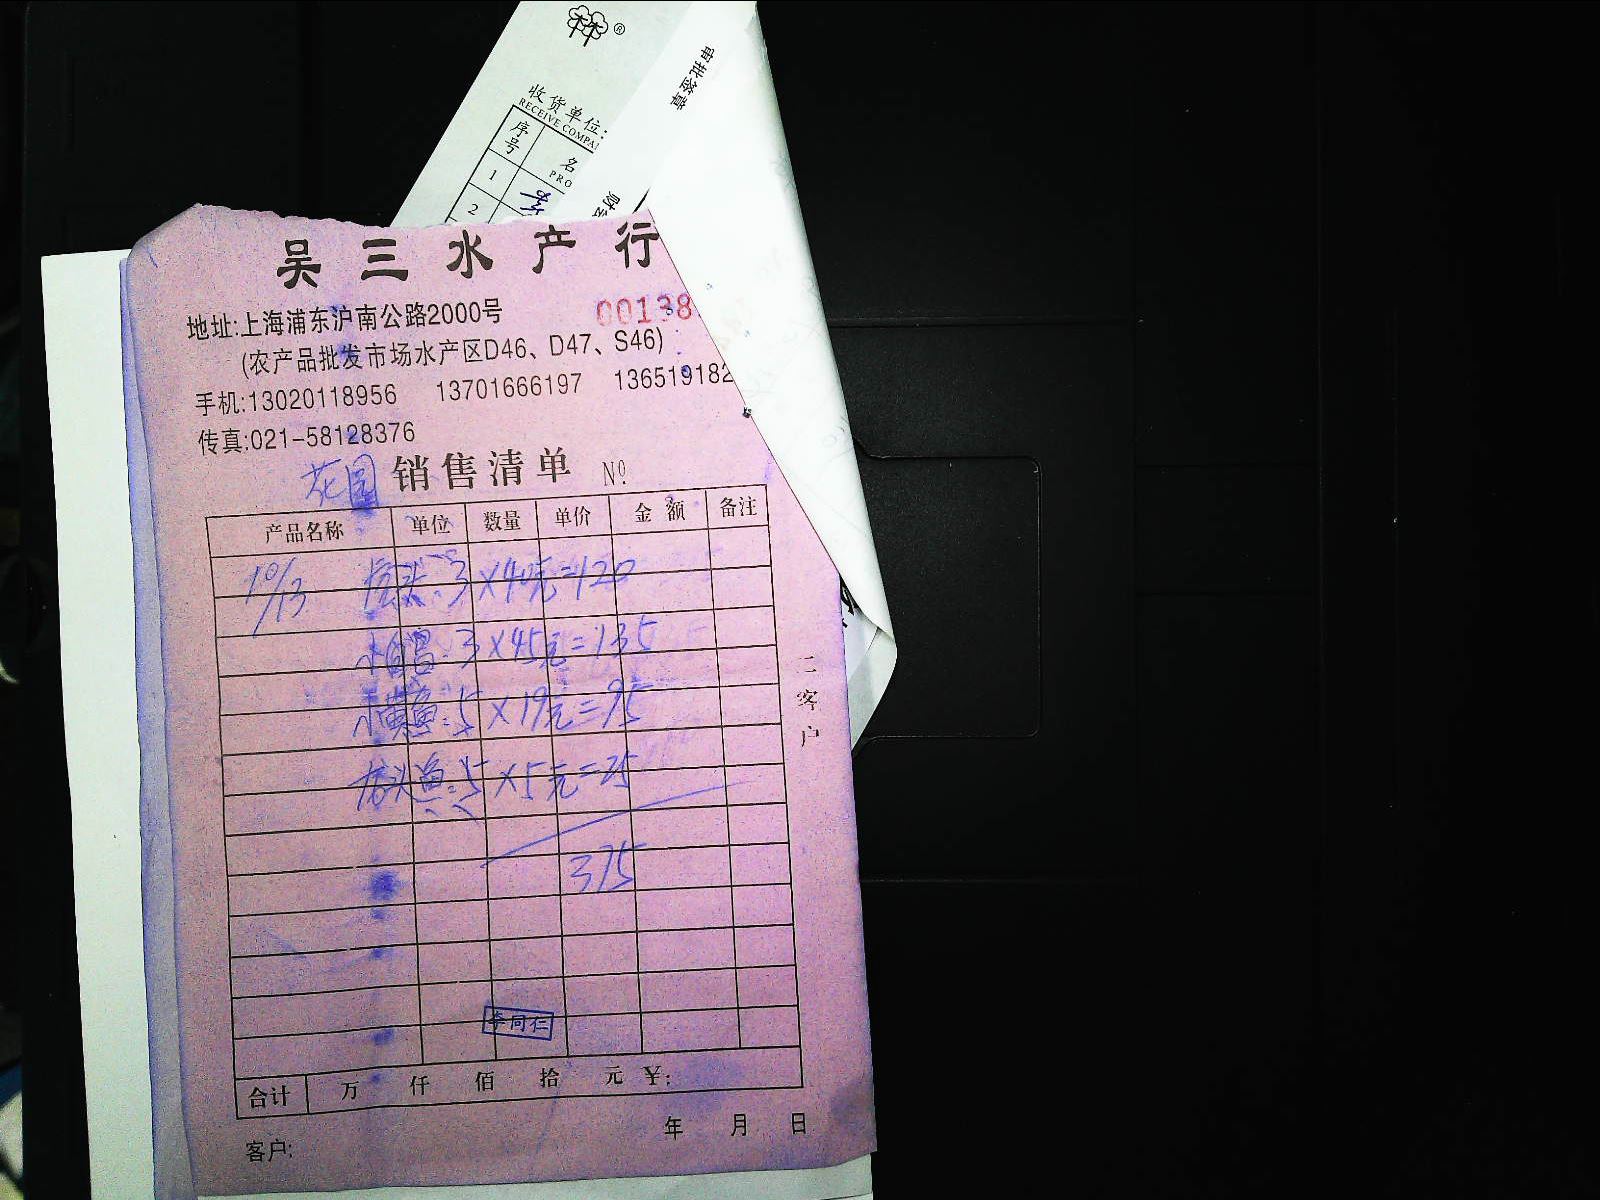 ®
审批签章
收货单位:
RECEIVE COMPA
序号
名
PRO
1
2
吴三水产行
地址:上海浦东沪南公路2000号
00138
(农产品批发市场水产区D46、D47、S46)
手机:13020118956 13701666197 136519182
传真:021-58128376
花园 销售清单 Nº
产品名称 单位 数量 单价 金额 备注
10/13 3×40元=120
3×45元=135
小黄鱼:5×19元=95
龙头鱼:5×5元=25
375
二客户
李同仁
合计 万 仟 佰 拾 元 ¥:
年 月 日
客户: